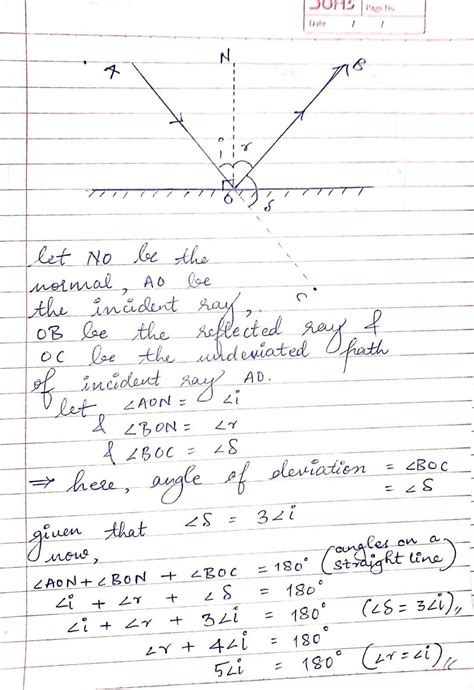 SOHS Page No.
Date / /
A N B
i r
O δ
C
let NO be the
normal, AO be
the incident ray,
OB be the reflected ray &
OC be the undeviated path
of incident ray AO.
let ∠AON = ∠i
& ∠BON = ∠r
& ∠BOC = ∠δ
⇒ here, angle of deviation = ∠BOC
= ∠δ
given that ∠δ = 3∠i
now,
∠AON + ∠BON + ∠BOC = 180° (angles on a straight line)
∠i + ∠r + ∠δ = 180°
∠i + ∠r + 3∠i = 180° (∠δ = 3∠i)
∠r + 4∠i = 180°
5∠i = 180° (∠r = ∠i)